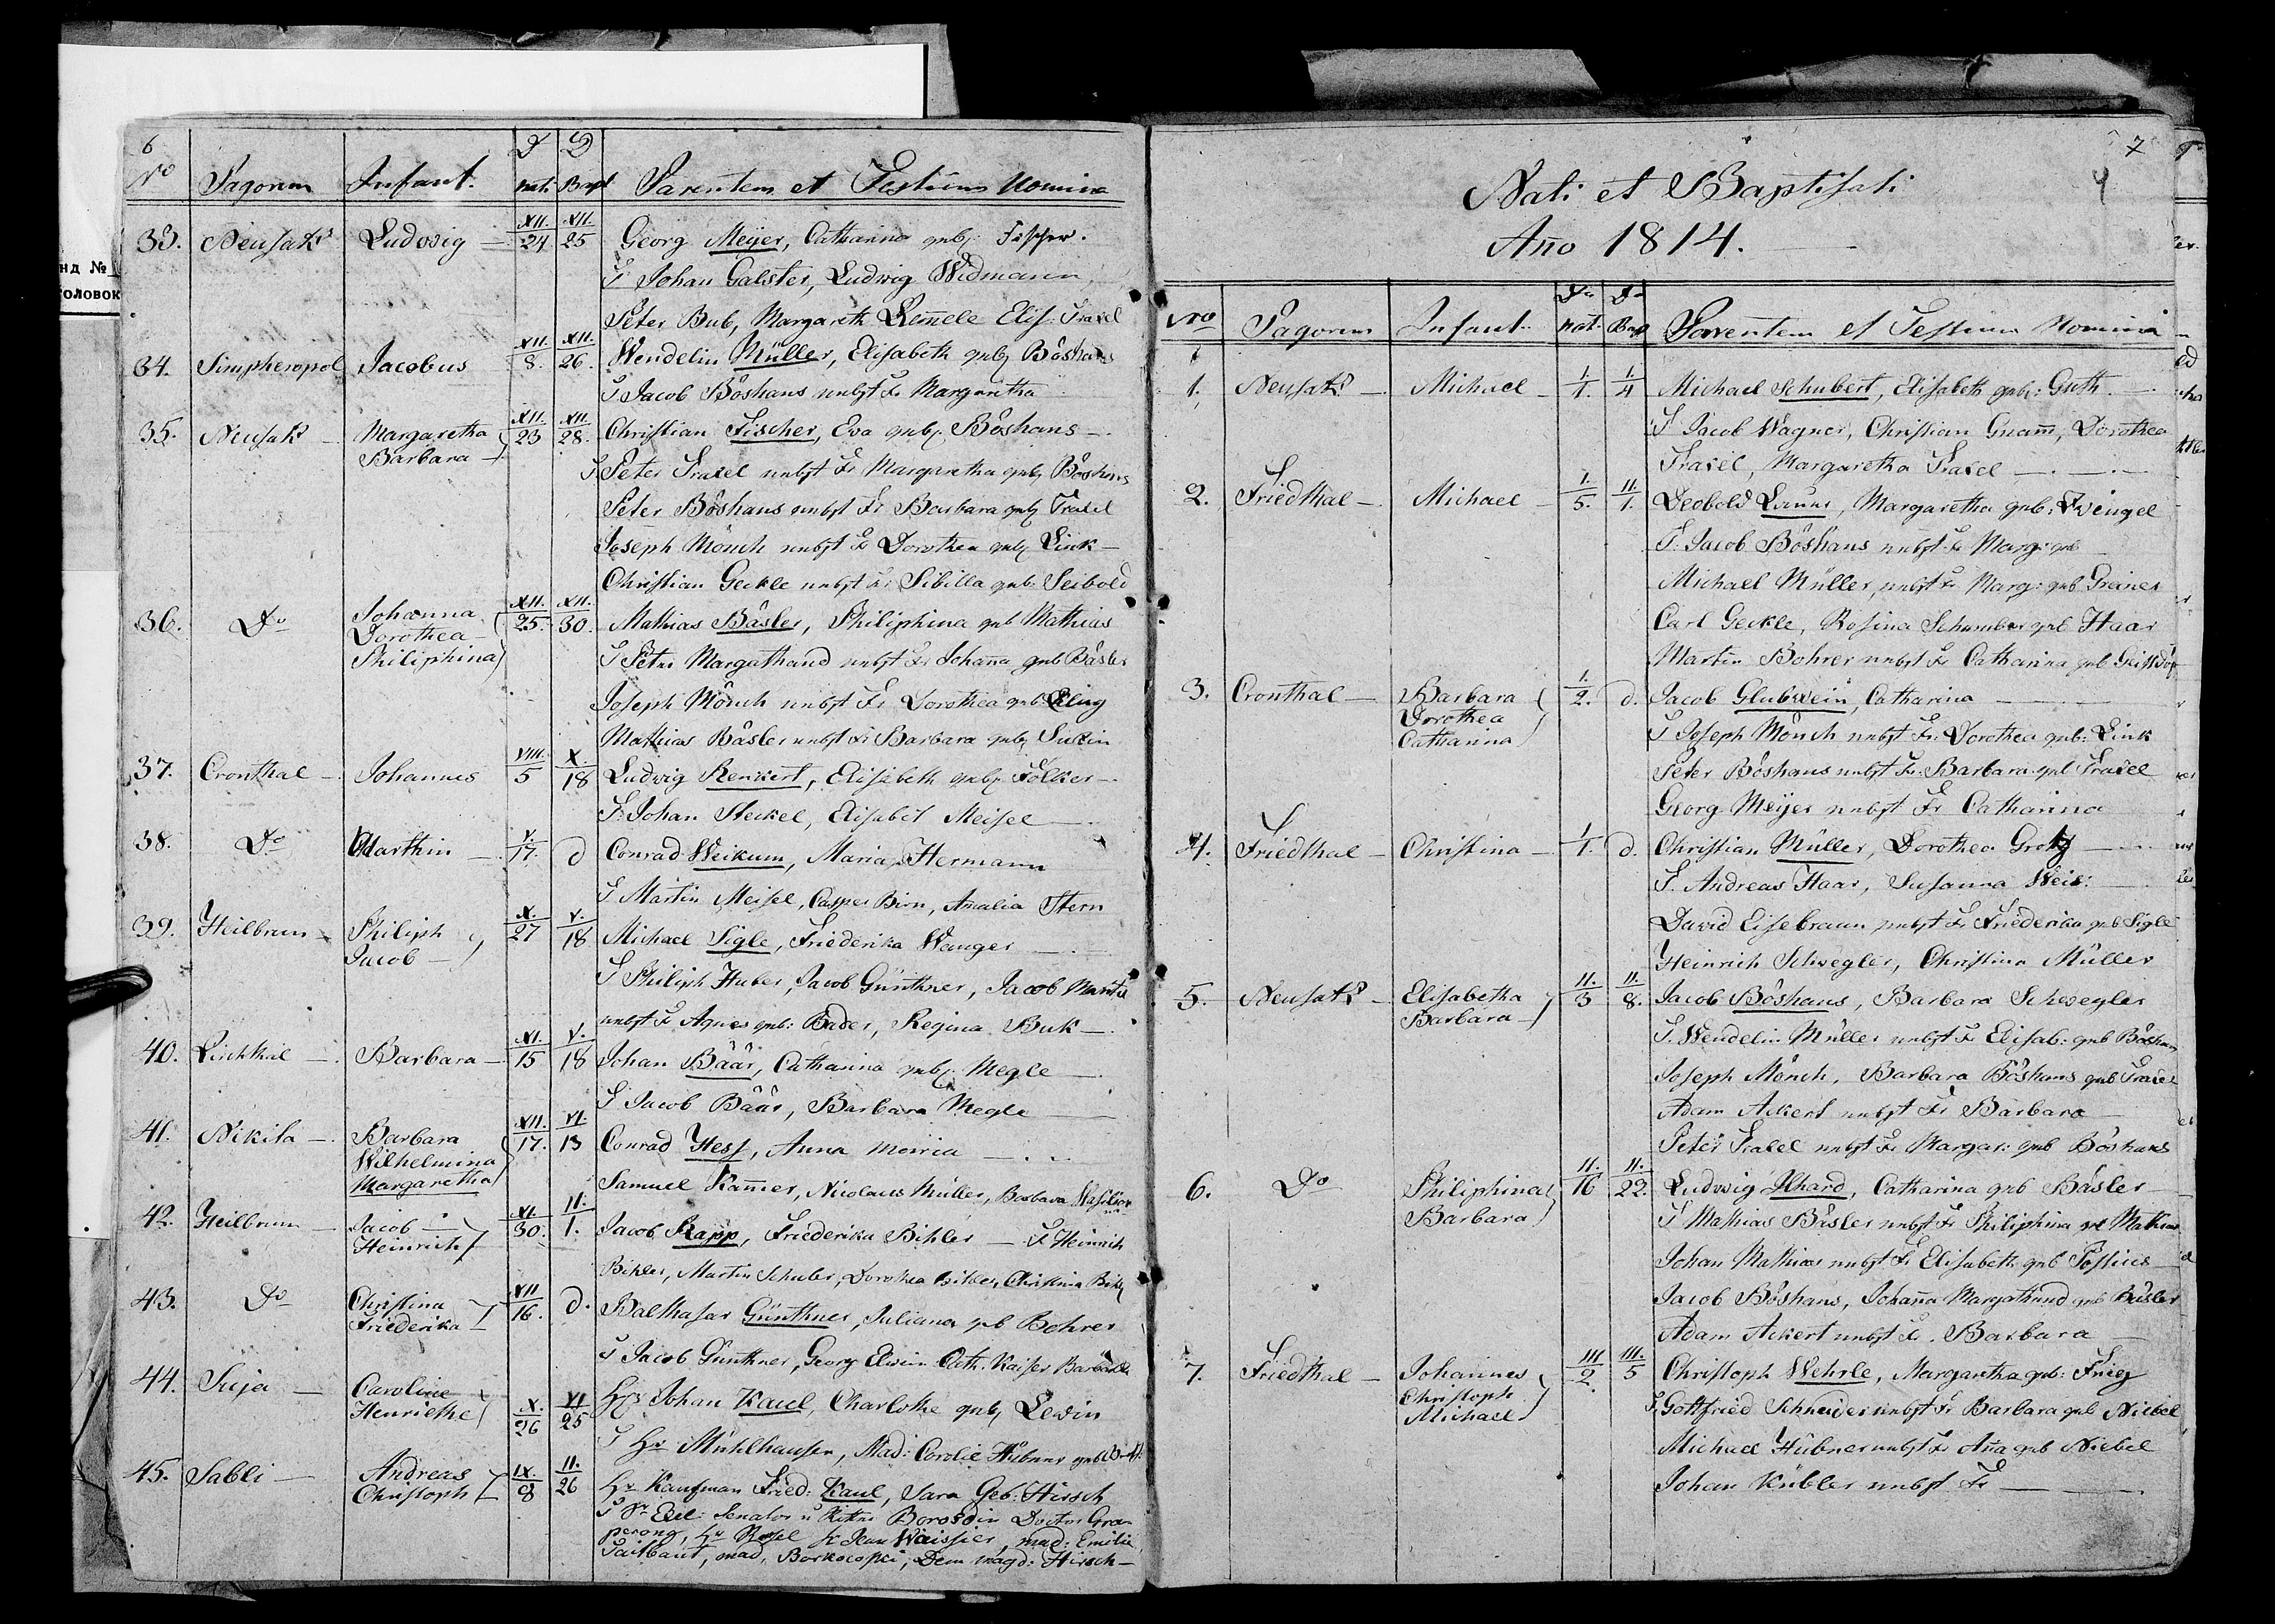 нд №
головок
6
No Pagorum Infant. D nat. D Bapt Parentem et Testium Nomina
33. Neusatz Ludwig — XII. 24 XII. 25 Georg Meyer, Catharina geb. Fischer.
T Johan Galster, Ludwig Widmann,
Peter Bub, Margareth Lemmele Elis: Traxel
34. Simpheropol Jacobus XII. 8. XII. 26. Wendelin Müller, Elisabeth geb. Böshans
T Jacob Böshans nebst Fr Margaretha
35. Neusatz — Margaretha XII. 23 XII. 28. Christian Fischer, Eva geb. Böshans —
Barbara —
T. Peter Traxel nebst Fr Margaretha geb. Böshans
Peter Böshans nebst Fr Barbara geb. Traxel
Joseph Mönch nebst Fr Dorothea geb. Link —
Christian Geckle nebst Fr Sibilla geb. Seibold
36. Do Johanna XII. 25. XII. 30. Mathias Bäsler, Philiphina geb Mathias
Dorothea —
Philiphina
T Peter Margathand nebst Fr Johanna geb Bäsler
Joseph Mönch nebst Fr Dorothea geb
Mathias Bäsler nebst Fr Barbara geb.
37. Cronthal — Johannes VIII. 5 X. 18 Ludwig Renkert, Elisabeth geb. Folker —
T. Johan Heckel, Elisabet Meisel —
38. Do Marthin — V. 17. d Conrad Weikum, Maria Hermann
T Martin Meisel, Casper Birn, Amalia Stern
39. Heilbrun — Philiph X. 27 V. 18 Michael Sigle, Friederika Wanger —
Jacob —
T Philiph Huber, Jacob Günthner, Jacob
nebst Fr Agnes geb: Bader, Regina Buk —
40. — Barbara — XI. 15 V. 18 Johan Bäär, Catharina geb. Megle —
T Jacob Bäär, Barbara Megle —
41. Nikita — Barbara XII. 17. VI 13 Conrad Hess, Anna Maria —
Wilhelmina
Margaretha
Samuel Kammer, Nicolaus Müller, Barbara
42. Heilbrun — Jacob — XI. 30. II. 1. Jacob Rapp, Friederika Bihler — T Heinrich
Heinrich
Bihler, Martin Schuler, Dorothea Bihler, Christina
43. Do Christina XII 16. d. Balthasar Günthner, Juliana geb Bohrer
Friederika
T Jacob Günthner, Georg Cath. Kaiser
44. Suja — Caroline X. 26 VI 25 Hr Johan Kaul, Charlothe geb. Lewin
Henriethe
T Hr Mühlhausen, Mad: Hübner geb
45. Sabli — Andreas IX. 8 II. 26 Hr Kaufman Fried: Kaul, Sara Geb: Hirsch
Christoph
T Sr Exel: Senator u Ritter Borosdin Doctor
Hr Hr Jean Waissier, mad: Emilie
mad. Dem magd: Hirsch —
7
4
Nati et Baptisati
Año 1814.
No Pagorum Infant. Da nat. Da Bap Parentem et Testium Nomina
1. Neusatz — Michael — 1. 1. 1. 4 Michael Schubert, Elisabeth geb: Guth —
T Jacob Wagner, Christian Gnamm, Dorothea
Traxel, Margaretha Traxel —
2. Friedthal — Michael — 1. 5. II. 1. Leobold Lauer, Margaretha geb: Zwingel
T. Jacob Böshans nebst Fr Marg: geb
Michael Müller, nebst Fr Marg: geb Greiner
Carl Geckle, Rosina Schumber geb Haar
Martin Bohrer nebst Fr Catharina geb
3. Cronthal — Barbara 1. 2. d. Jacob Glubwein, Catharina —
Dorothea
Catharina
T Joseph Mönch nebst Fr. Dorothea geb: Link
Peter Böshans nebst Fr. Barbara geb Traxel
Georg Meyer nebst Fr Catharina
4. Friedthal — Christina — 1 1. d. Christian Müller, Dorothea Grotz —
T. Andreas Haar, Susanna Weis: —
David Eisebraun nebst Fr Friederika geb Sigle
Heinrich Schwegler, Christina Müller
5. Neusatz — Elisabetha II. 3 II. 8. Jacob Böshans, Barbara Schwegler
Barbara —
T. Wendelin Müller nebst Fr Elisab: geb Böshans
Joseph Mönch, Barbara Böshans geb Traxel
Adam Ackert nebst Fr Barbara —
Peter Traxel nebst Fr Margar: geb Böshans
6. Do Philiphina II. 16 II. 22. Ludwig Ilhard, Catharina geb Bäsler —
Barbara
T Mathias Bäsler nebst Fr Philiphina geb Mathias
Johan Mathias nebst Fr Elisabeth geb
Jacob Böshans, Johanna Margathand geb Bäsler
Adam Ackert nebst Fr. Barbara —
7. Friedthal — Johannes III 2. III. 5 Christoph Wehrle, Margaretha geb: Frieg
Christoph
Michael
T. Gottfried Schneider nebst Fr Barbara geb Niebel
Michael Hübner nebst Fr Anna geb Niebel
Johan Kübler nebst Fr —